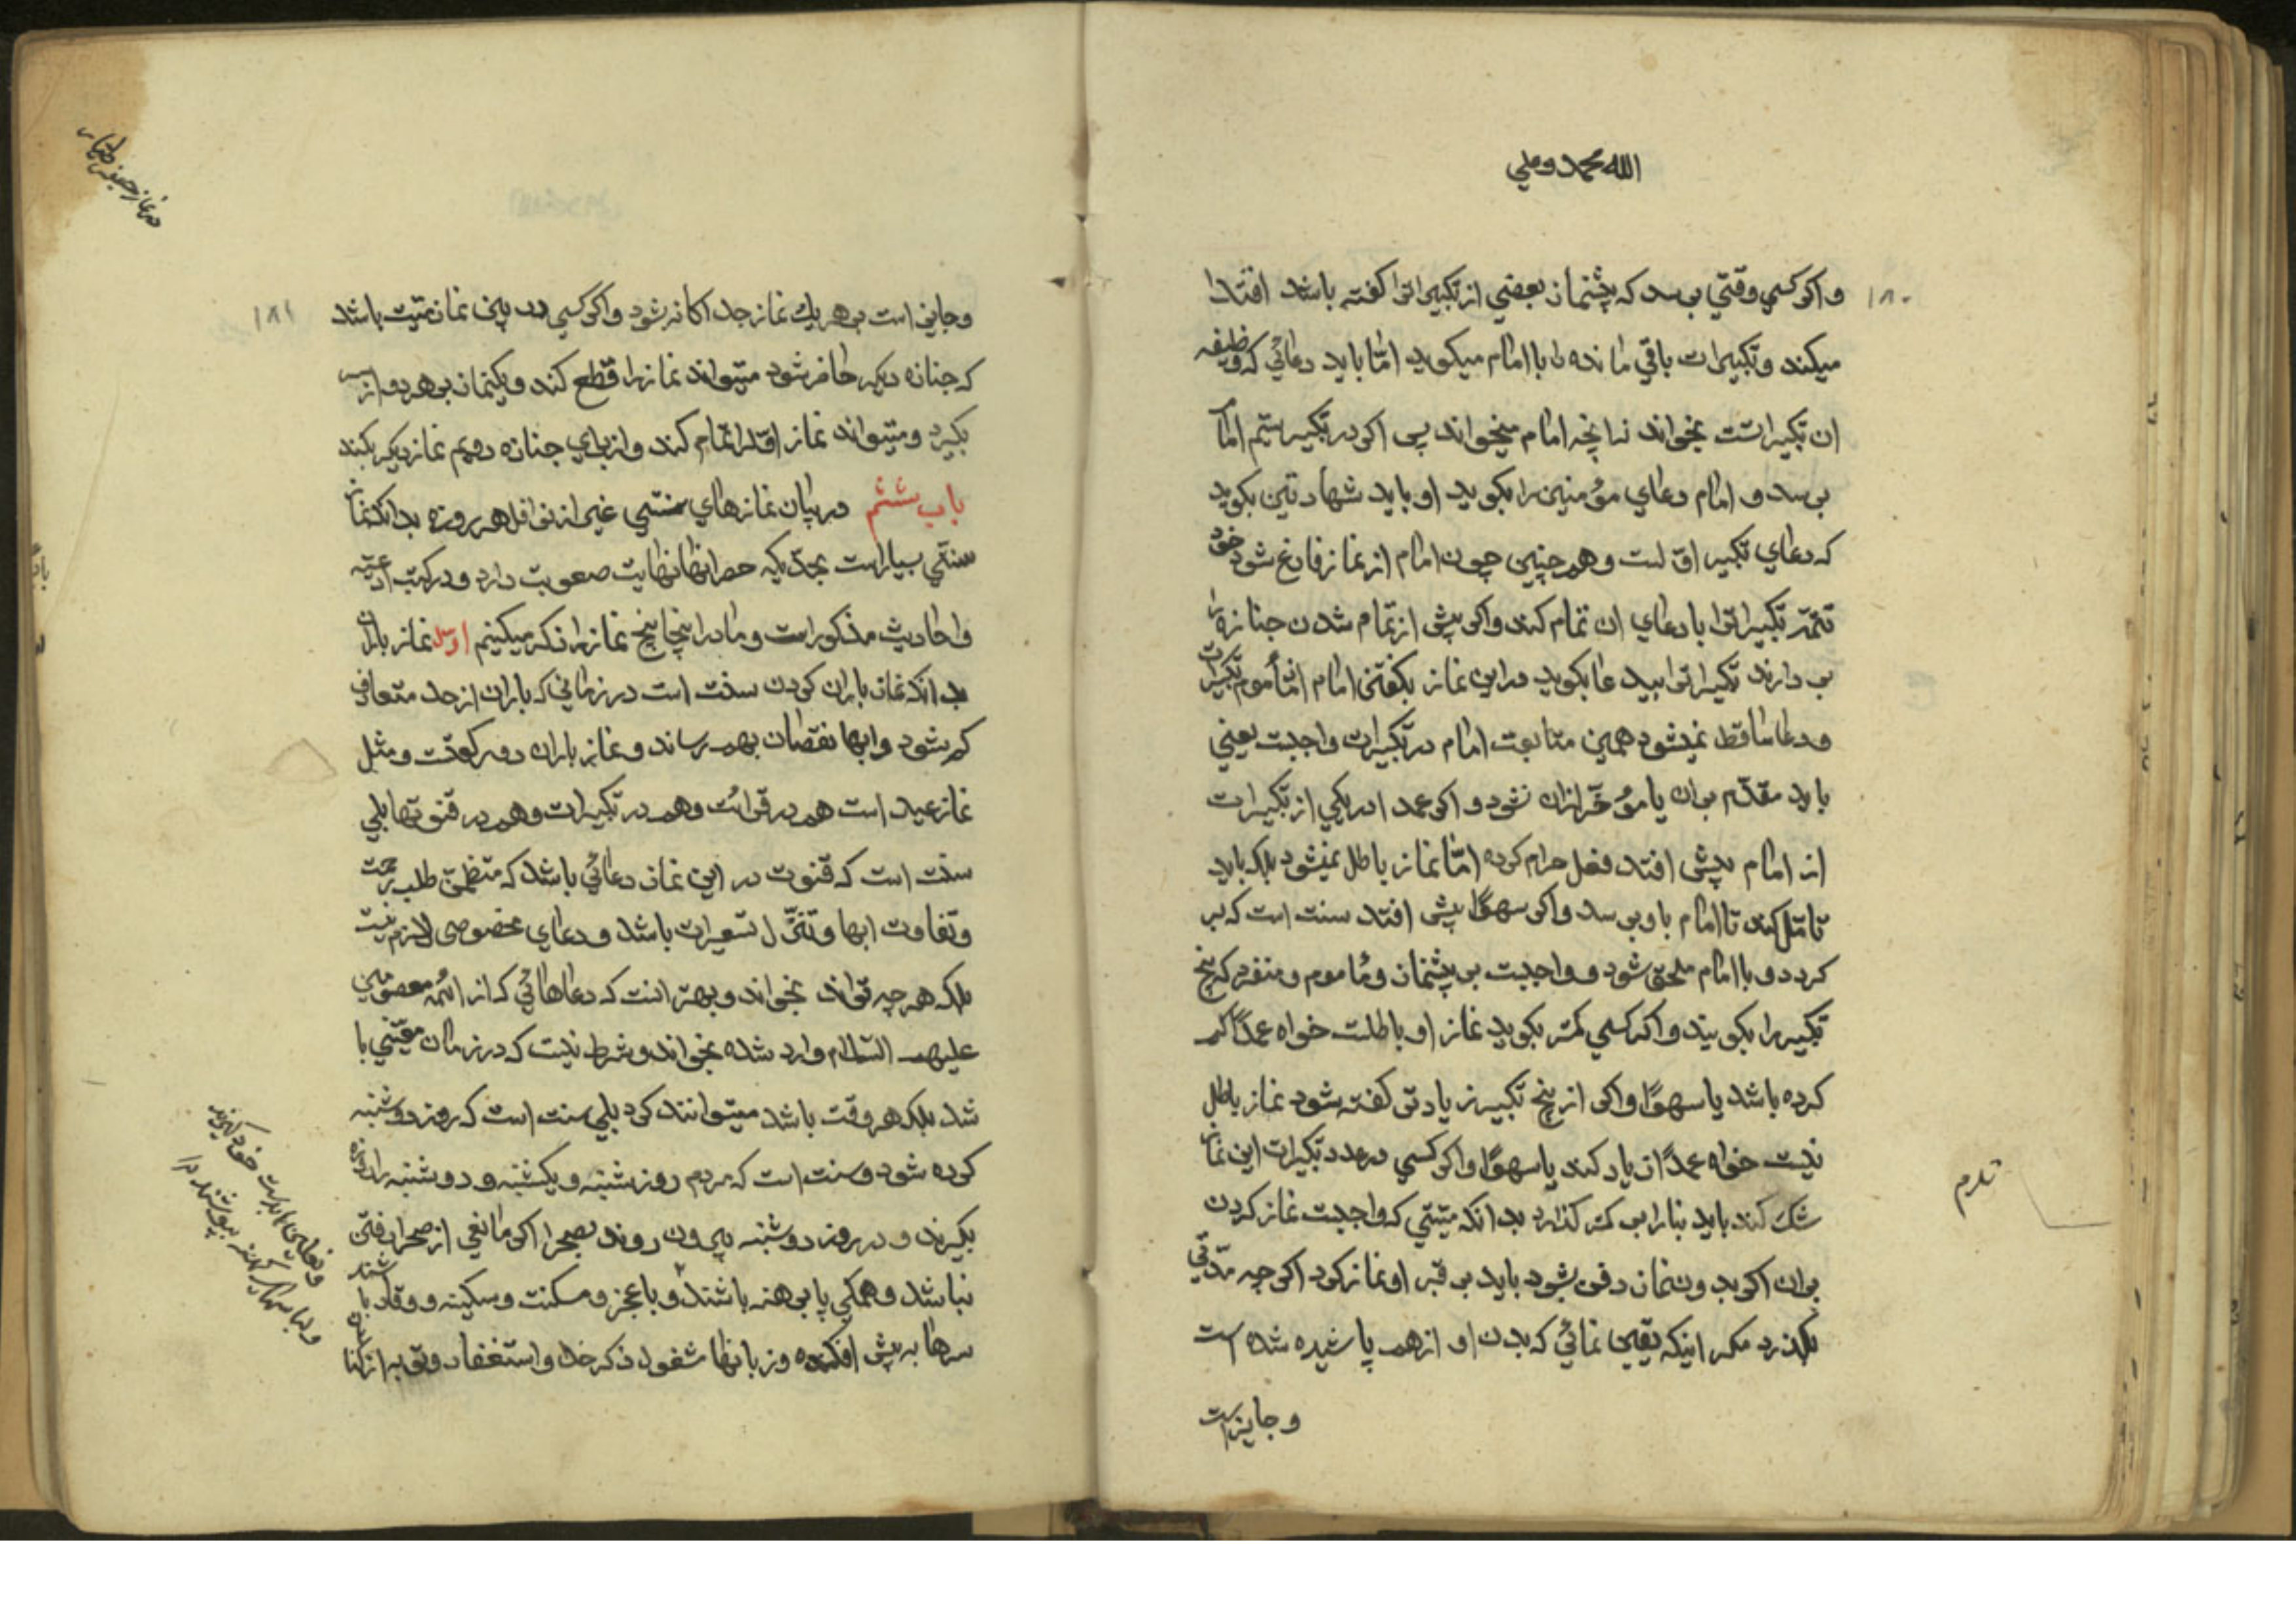 الله محمد و علي
١٨٠
و اکر کسي وقتي برسد که پیشنماز بعضي از تکبیراترا کفته باشد اقتدا
میکند و تکبیرات باقي مانده را با امام میکوید امّا باید دعائي که وظیفه
ان تکبیراست بخواند نه انچه امام میخواند پس اکر در تکبیر سیّم امام
برسد و امام دعاي مؤمنین را بکوید او باید شهادتین بکوید
که دعاي تکبیر اوّلست و همچنین چون امام از نماز فارغ شود خود
تتمّه تکبیراترا با دعاي ان تمام کند و اکر پیش از تمام شدن جنازه را
بردارند تکبیراترا بیدعا بکوید در این نماز بکفتن امام از مأموم تکبیرات
و دعا ساقط نمیشود همین متابعت امام در تکبیرات واجبست یعني
باید مقدّم بران یا مؤخّر ازان نشود و اکر عمدا در یکي از تکبیرات
از امام پیش افتد فعل حرام کرده امّا نماز باطل نمیشود بلکه باید
تامّل کند تا امام باو برسد و اکر سهوًا پیش افتد سنت است که بر
کردد و با امام ملحق شود و واجبست بر پیشنماز و مأموم و منفرد که پنج
تکبیر را بکویند و اکر کسي کمتر بکوید نماز او باطلست خواه عمدًا کم
کرده باشد یا سهوًا و اکر از پنج تکبیر زیادتي کفته شود نماز باطل
نیست خواه عمدًا زیاد کند یا سهوًا و اکر کسي در عدد تکبیرات این نماز
شک کند باید بنا را بر کمتر کذارد بدانکه میّتي که واجبست نماز کردن
بران اکر بدون نماز دفن شود باید بر قبر او نماز کرد اکر چه مدّتي
بکذرد مکر اینکه یقین نمائي که بدن او از هم پاشیده شده است
و جایز است
١٨١
و جایز است بر هر یک نماز جداکانه شود و اکر کسي در بین نماز میّت باشد
که جنازه دیکر حاضر شود میتواند نماز را قطع کند و یکنماز بر هر دو از سر
بکیرد و میتواند نماز اوّلرا تمام کند و از براي جنازه دویم نماز دیکر بکند
باب ششم در بیان نمازهاي سنتي غیر از نوافل هر روزه بدانکه نماز
سنتي بسیار است بحدّیکه حصر انها نهایت صعوبت دارد و در کتب ادعیّه
و احادیث مذکور است و ما در اینجا پنج نماز را ذکر میکنیم اول نماز باران
بدانکه نماز باران کردن سنت است در زماني که باران از حد متعارف
کم شود و ابها نقصان بهم رساند و نماز باران دو رکعتست و مثل
نماز عید است هم در قرائت و هم در تکبیرات و هم در قنوتها بلي
سنت است که قنوت در این نماز دعائي باشد که متضمّن طلب رحمت
و تفاوت ابها و تنزّل تسعیرات باشد و دعاي مخصوصي لازم نیست
بلکه هر چه تواند بخواند و بهتر انست که دعاهائي که از ائمّه معصومین
علیهم السّلام وارد شده بخواند و شرط نیست که در زمان معیّني با
شد بلکه هر وقت باشد میتوانند کرد بلي سنت است که روز دوشنبه
کرده شود و سنت است که مردم روز شنبه و یکشنبه و دوشنبه را روزه
بکیرند و در روز دوشنبه بیرون روند بصحرا اکر مانعي از صحرا رفتن
نباشد و همکي پا برهنه باشند و با عجز و مسکنت و سکینه و وقار باشند
سرها به پیش افکنده و زبانها مشغول ذکر خدا و استغفار و توبه از کناه